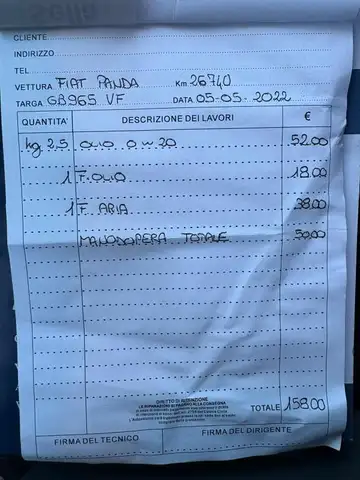 CLIENTE
INDIRIZZO
TEL
VETTURA FIAT PANDA Km 26740
TARGA GB965 VF DATA 05-05-2022
QUANTITA' DESCRIZIONE DEI LAVORI €
kg 2,5 OLIO 0W20 52.00
1 F. OLIO 18.00
1 F. ARIA 38.00
MANODOPERA TOTALE 50.00
DIRITTO DI RITENZIONE
LE RIPARAZIONI SI PAGANO ALLA CONSEGNA
TOTALE 158.00
FIRMA DEL TECNICO FIRMA DEL DIRIGENTE